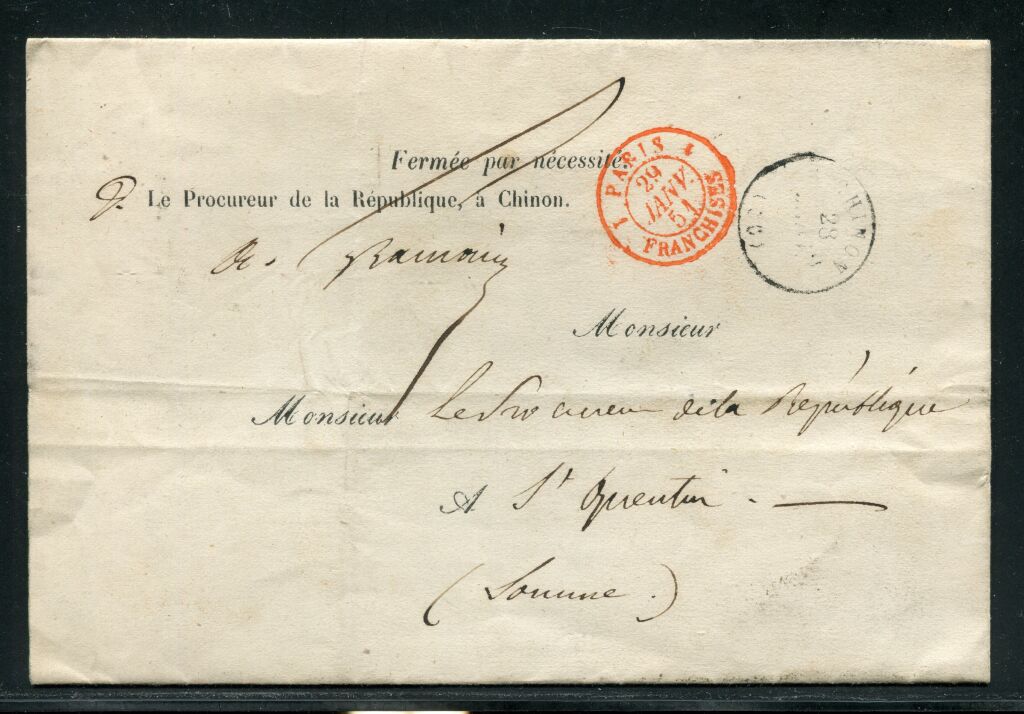 Fermée par nécessité,
Le Procureur de la République, à Chinon.
1 PARIS 1
29
JANV.
51
FRANCHISES
CHINON
28
(36)
Monsieur
Monsieur Le Procureur de la République
A St Quentin.
(Somme.)